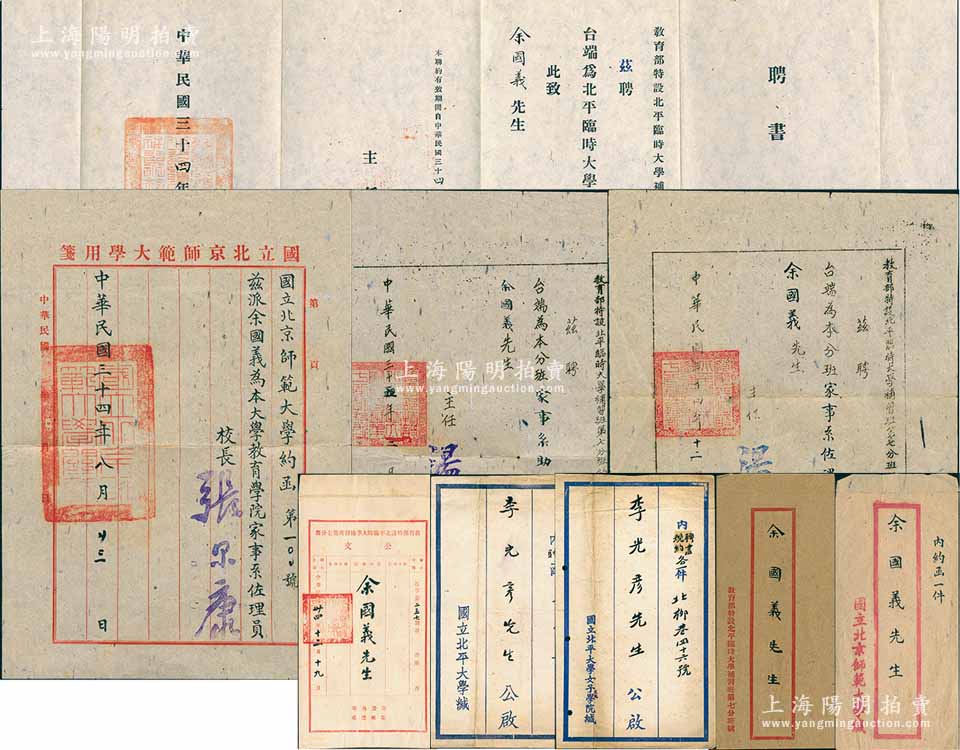 上海陽明拍賣
www.yangmingauction.com
聘書
教育部特設北平臨時大學補
茲聘
台端爲北平臨時大學
此致
余國義先生
本聘約有效期間自中華民國三十四
主
中華民國三十四年
國立北京師範大學用箋
第 頁
國立北京師範大學約函 第一〇〇號
茲派余國義為本大學教育學院家事系佐理員
校長
中華民國三十四年八月廿三日
中華民國
教育部特設北平臨時大學補習班第七分班
茲聘
台端為本分班家事系助
余國義先生
主任
中華民國三十五年二
教育部特設北平臨時大學補習班第七分班
茲聘
台端為本分班家事系佐理
余國義先生
主任
中華民國三十四年十二
上海陽明拍賣
www.yangmingauction.com
公文
余國義先生
卅四年十二月十九
李光彥先生 公啟
國立北平大學緘
內聘書規約各一件
北御巷四十六號
李光彥先生 公啟
國立北平大學女子學院緘
余國義先生
教育部特設北平臨時大學補習班第七分班緘
內約函一件
余國義先生
國立北京師範大學緘
上海陽明拍賣
www.yangmingauction.com